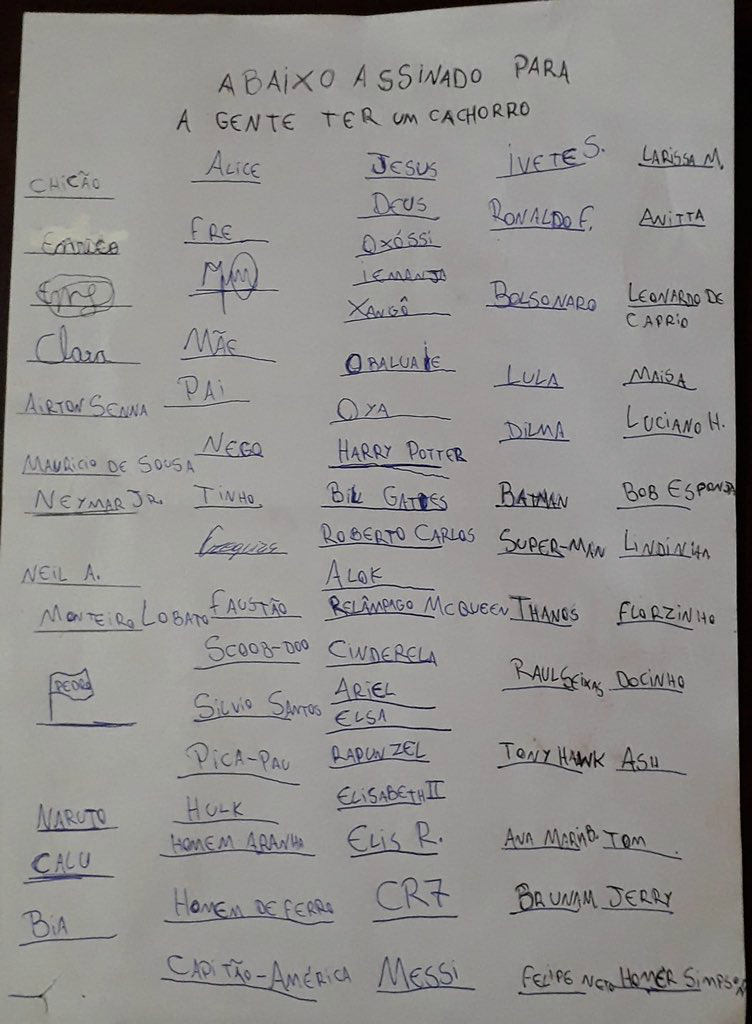 ABAIXO ASSINADO PARA
A GENTE TER UM CACHORRO
CHICÃO
Clara
AIRTON SENNA
MAURICIO DE SOUSA
NEYMAR JR.
NEIL A.
MONTEIRO LOBATO
PEDRO
NARUTO
CALU
BIA
ALICE
FRE
MÃE
PAI
NEGO
TINHO
FAUSTÃO
SCOOB-DOO
SILVIO SANTOS
PICA-PAU
HULK
HOMEM ARANHA
HOMEM DE FERRO
CAPITÃO-AMÉRICA
JESUS
DEUS
OXÓSSI
IEMANJA
XANGÔ
OBALUAIE
OYA
HARRY POTTER
BILL GATES
ROBERTO CARLOS
ALOK
RELÂMPAGO MCQUEEN
CINDERELA
ARIEL
ELSA
RAPUNZEL
ELISABETH II
ELIS R.
CR7
MESSI
IVETE S.
RONALDO F.
BOLSONARO
LULA
DILMA
BATMAN
SUPER-MAN
THANOS
RAUL SEIXAS
TONY HAWK
ANA MARIA B.
BRUNA M
FELIPE NETO
LARISSA M.
ANITTA
LEONARDO DE
CAPRIO
MAISA
LUCIANO H.
BOB ESPONJA
LINDINHA
FLORZINHO
DOCINHO
ASH
TOM
JERRY
HOMER SIMPSON